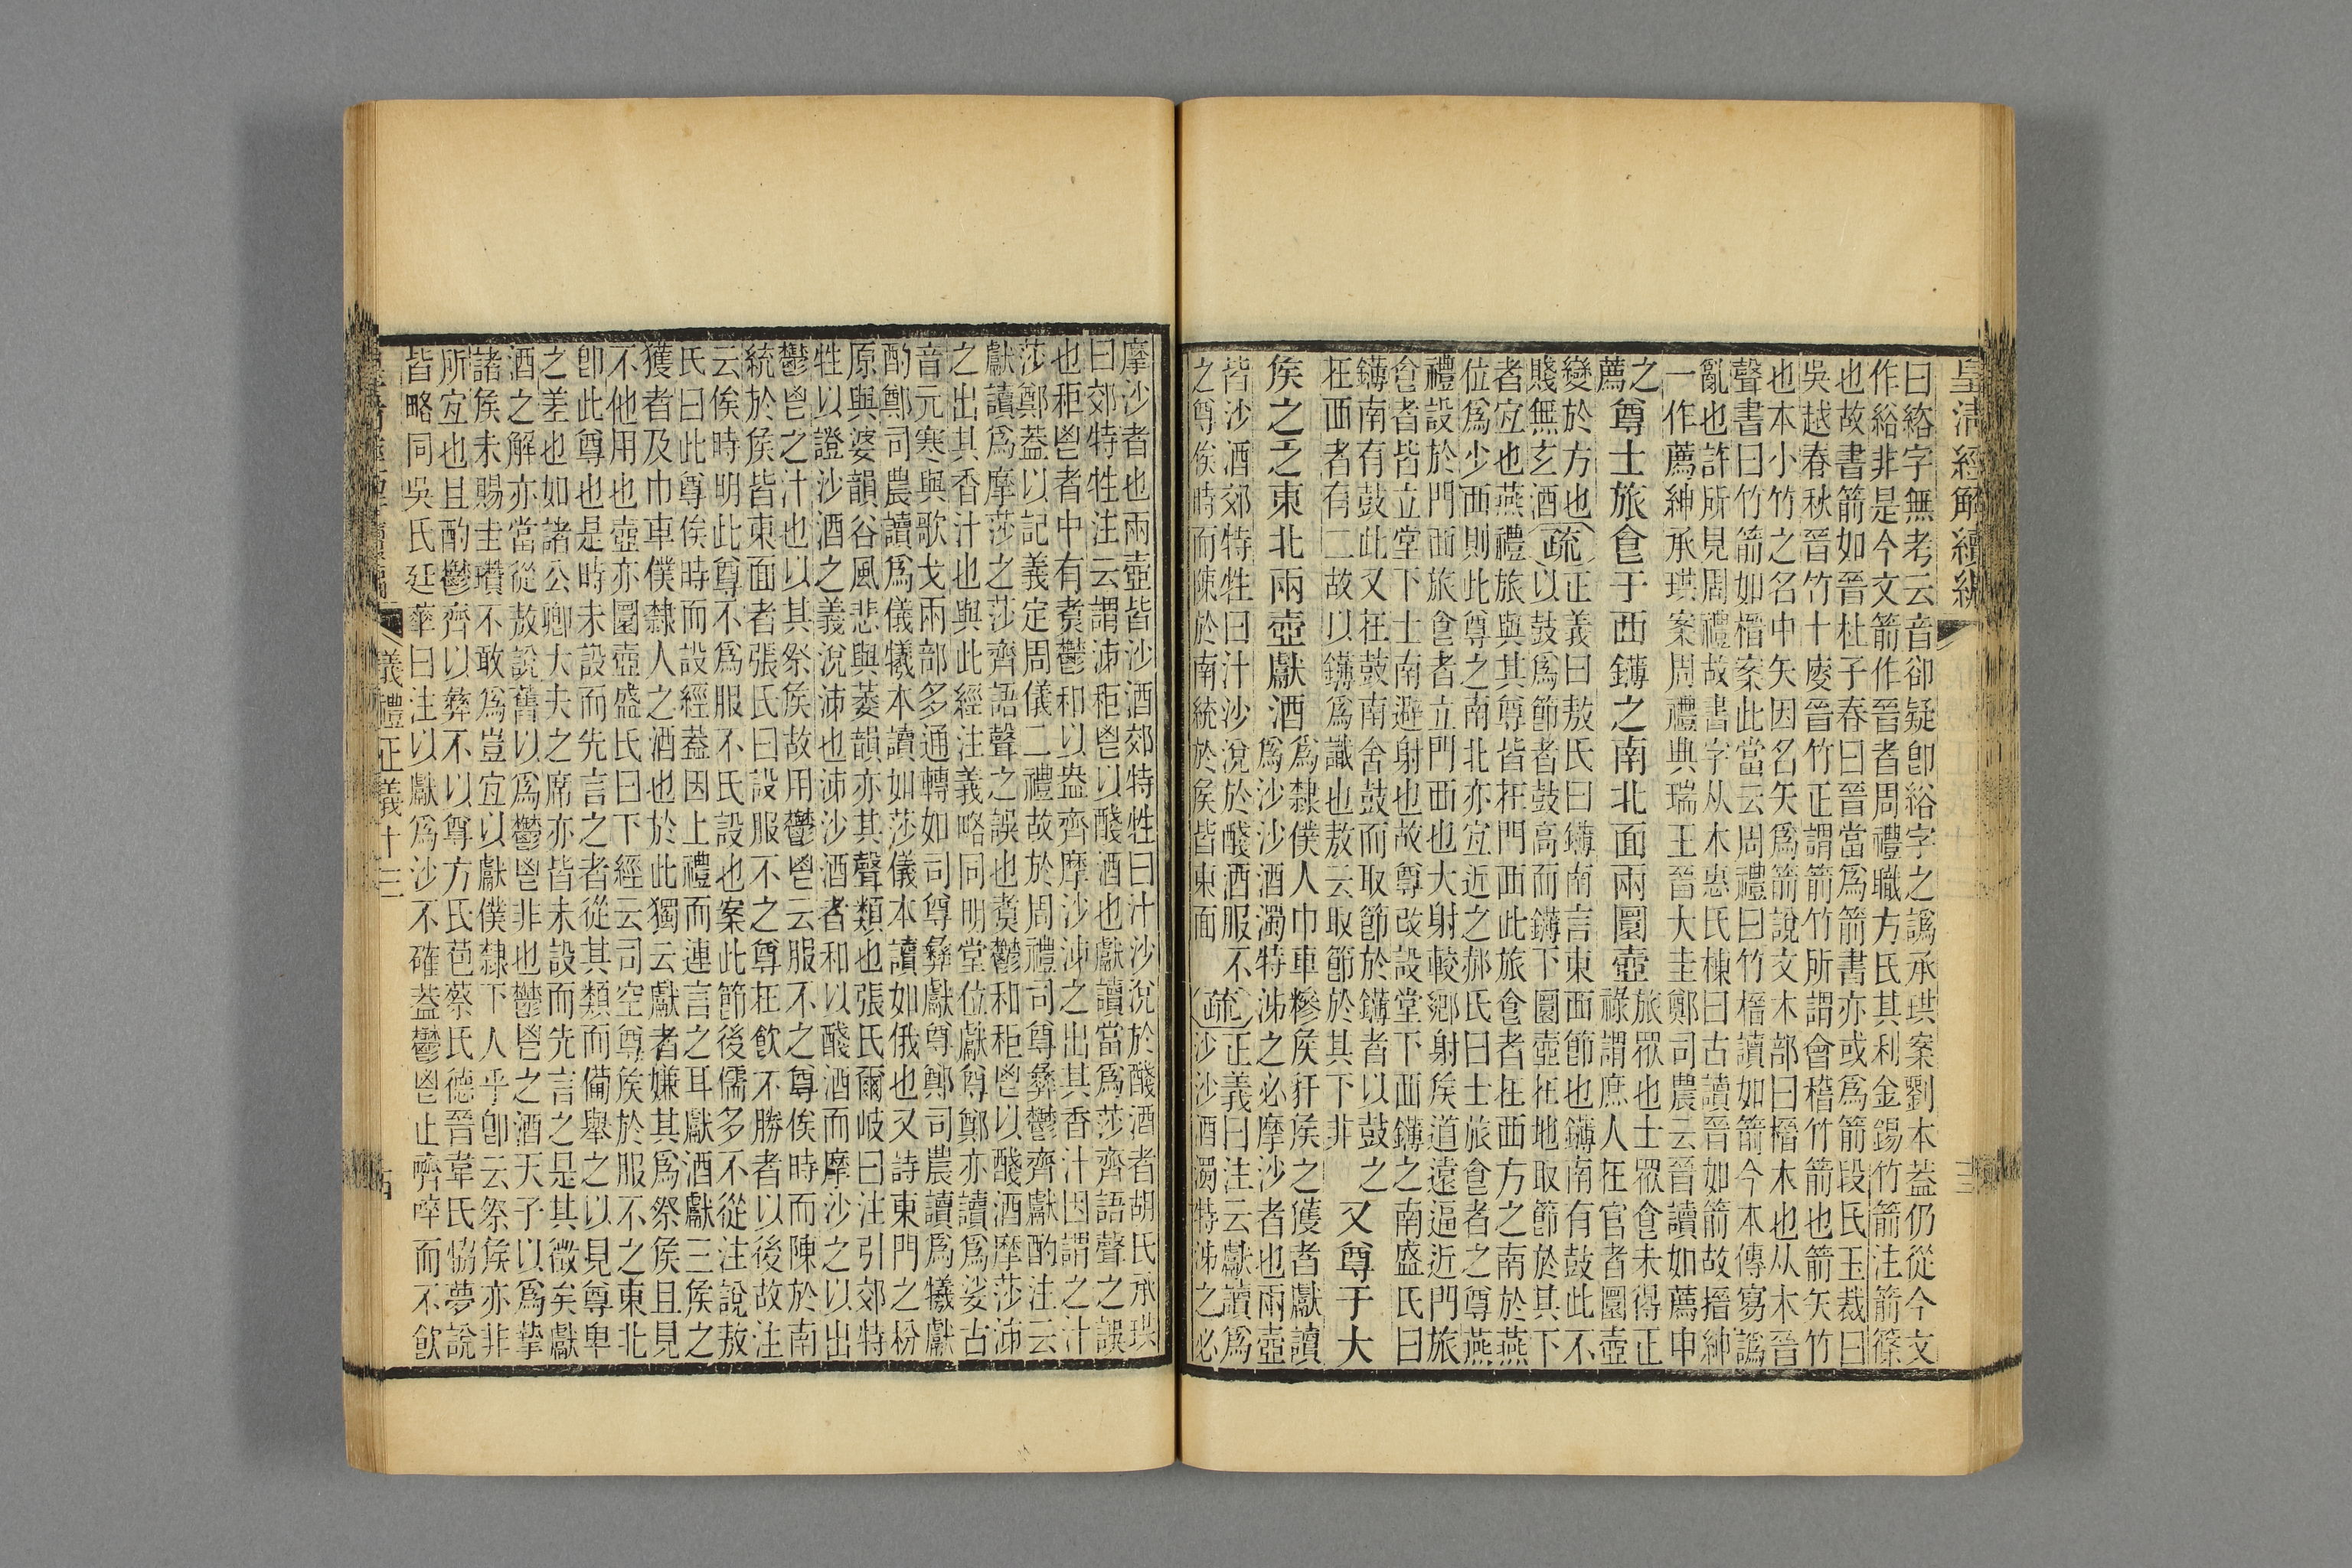 皇清經解續編
曰綌字無考云音卻疑卽綌字之譌承珙案劉本葢仍從今文
作綌非是今文箭作晉者周禮職方氏其利金錫竹箭注箭篠
也故書箭如晉杜子春曰晉當爲箭書亦或爲箭段氏玉裁曰
吳越春秋晉竹十廋晉竹正謂箭竹所謂會稽竹箭也箭矢竹
也本小竹之名中矢因名矢爲箭說文木部曰榗木也从木晉
聲書曰竹箭如榗案此當云周禮曰竹榗讀如箭今本傳寫譌
亂也許所見周禮故書字从木惠氏棟曰古讀晉如箭故搢紳
一作薦紳承珙案周禮典瑞王晉大圭鄭司農云晉讀如薦申
之
薦
尊士旅食于西鑮之南北面兩圜壺
旅眾也士眾食未得正
祿謂庶人在官者圜壺
變於方也
賤無玄酒
疏
正義曰敖氏曰鑮南言東面節也鑮南有鼓此不
以鼓爲節者鼓高而鑮下圜壺在地取節於其下
者宜也燕禮旅與其尊皆在門西此旅食者在西方之南於燕
位爲少西則此尊之南北亦宜近之郝氏曰士旅食者之尊燕
禮設於門西旅食者立門西也大射較鄉射矦道遠逼近門旅
食者皆立堂下士南避射也故尊改設堂下西鑮之南盛氏曰
鑮南有鼓此又在鼓南舍鼓而取節於鑮者以鼓之
在西者有二故以鑮爲識也敖云取節於其下非
又尊于大
矦之乏東北兩壺獻酒
爲隸僕人巾車糝矦豻矦之獲者獻讀
爲沙沙酒濁特泲之必摩沙者也兩壺
皆沙酒郊特牲曰汁沙涗於醆酒服不
之尊俟時而陳於南統於矦皆東面
疏
正義曰注云獻讀爲
沙沙酒濁特泲之必
摩沙者也兩壺皆沙酒郊特牲曰汁沙涗於醆酒者胡氏承珙
曰郊特牲注云謂泲秬鬯以醆酒也獻讀當爲莎齊語聲之誤
也秬鬯者中有煑鬱和以盎齊摩沙泲之出其香汁因謂之汁
莎鄭葢以記義定周儀二禮故於周禮司尊彝鬱齊獻酌注云
獻讀爲摩莎之莎齊語聲之誤也煑鬱和秬鬯以醆酒摩莎泲
之出其香汁也與此經注義略同明堂位獻尊鄭亦讀爲娑古
音元寒與歌戈兩部多通轉如司尊彝獻尊鄭司農讀爲犧獻
酌鄭司農讀爲儀犧本讀如莎儀本讀如俄也又詩東門之枌
原與婆韻谷風悲與萎韻亦其聲類也張氏爾岐曰注引郊特
牲以證沙酒之義涗泲也泲沙酒者和以醆酒而摩沙之以出
鬱鬯之汁也以其祭矦故用鬱鬯云服不之尊俟時而陳於南
統於矦皆東面者張氏曰設服不之尊在飲不勝者以後故注
云俟時明此尊不爲服不氏設也案此節後儒多不從注說敖
氏曰此尊俟時而設經葢因上禮而連言之耳獻酒獻三矦之
獲者及巾車僕隸人之酒也於此獨云獻者嫌其爲祭矦且見
不他用也壺亦圜壺盛氏曰下經云司空尊矦於服不之東北
卽此尊也是時未設而先言之者從其類而備舉之以見尊卑
之差也如諸公卿大夫之席亦皆未設而先言之是其徵矣獻
酒之解亦當從敖說舊以爲鬱鬯非也鬱鬯之酒天子以爲摯
諸矦未賜圭瓚不敢爲豈宜以獻僕隸下人乎卽云祭矦亦非
所宜也且酌鬱齊以彝不以尊方氏苞蔡氏德晉韋氏協夢說
皆略同吳氏廷華曰注以獻爲沙不確葢鬱鬯止嚌啐而不飲
儀禮正義十三